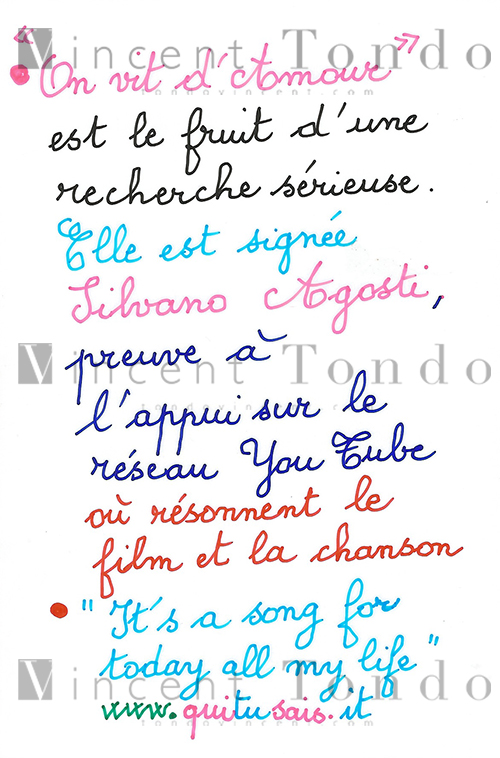 Vincent Tondo
tondovincent.com
« On vit d'Amour »
est le fruit d'une
recherche sérieuse.
Elle est signée
Silvano Agosti,
Vincent Tondo
preuve à
tondovincent.com
l'appui sur le
réseau YouTube
où résonnent le
film et la chanson
• "It's a song for
today all my life"
Vincent Tondo
www.quitusais.it